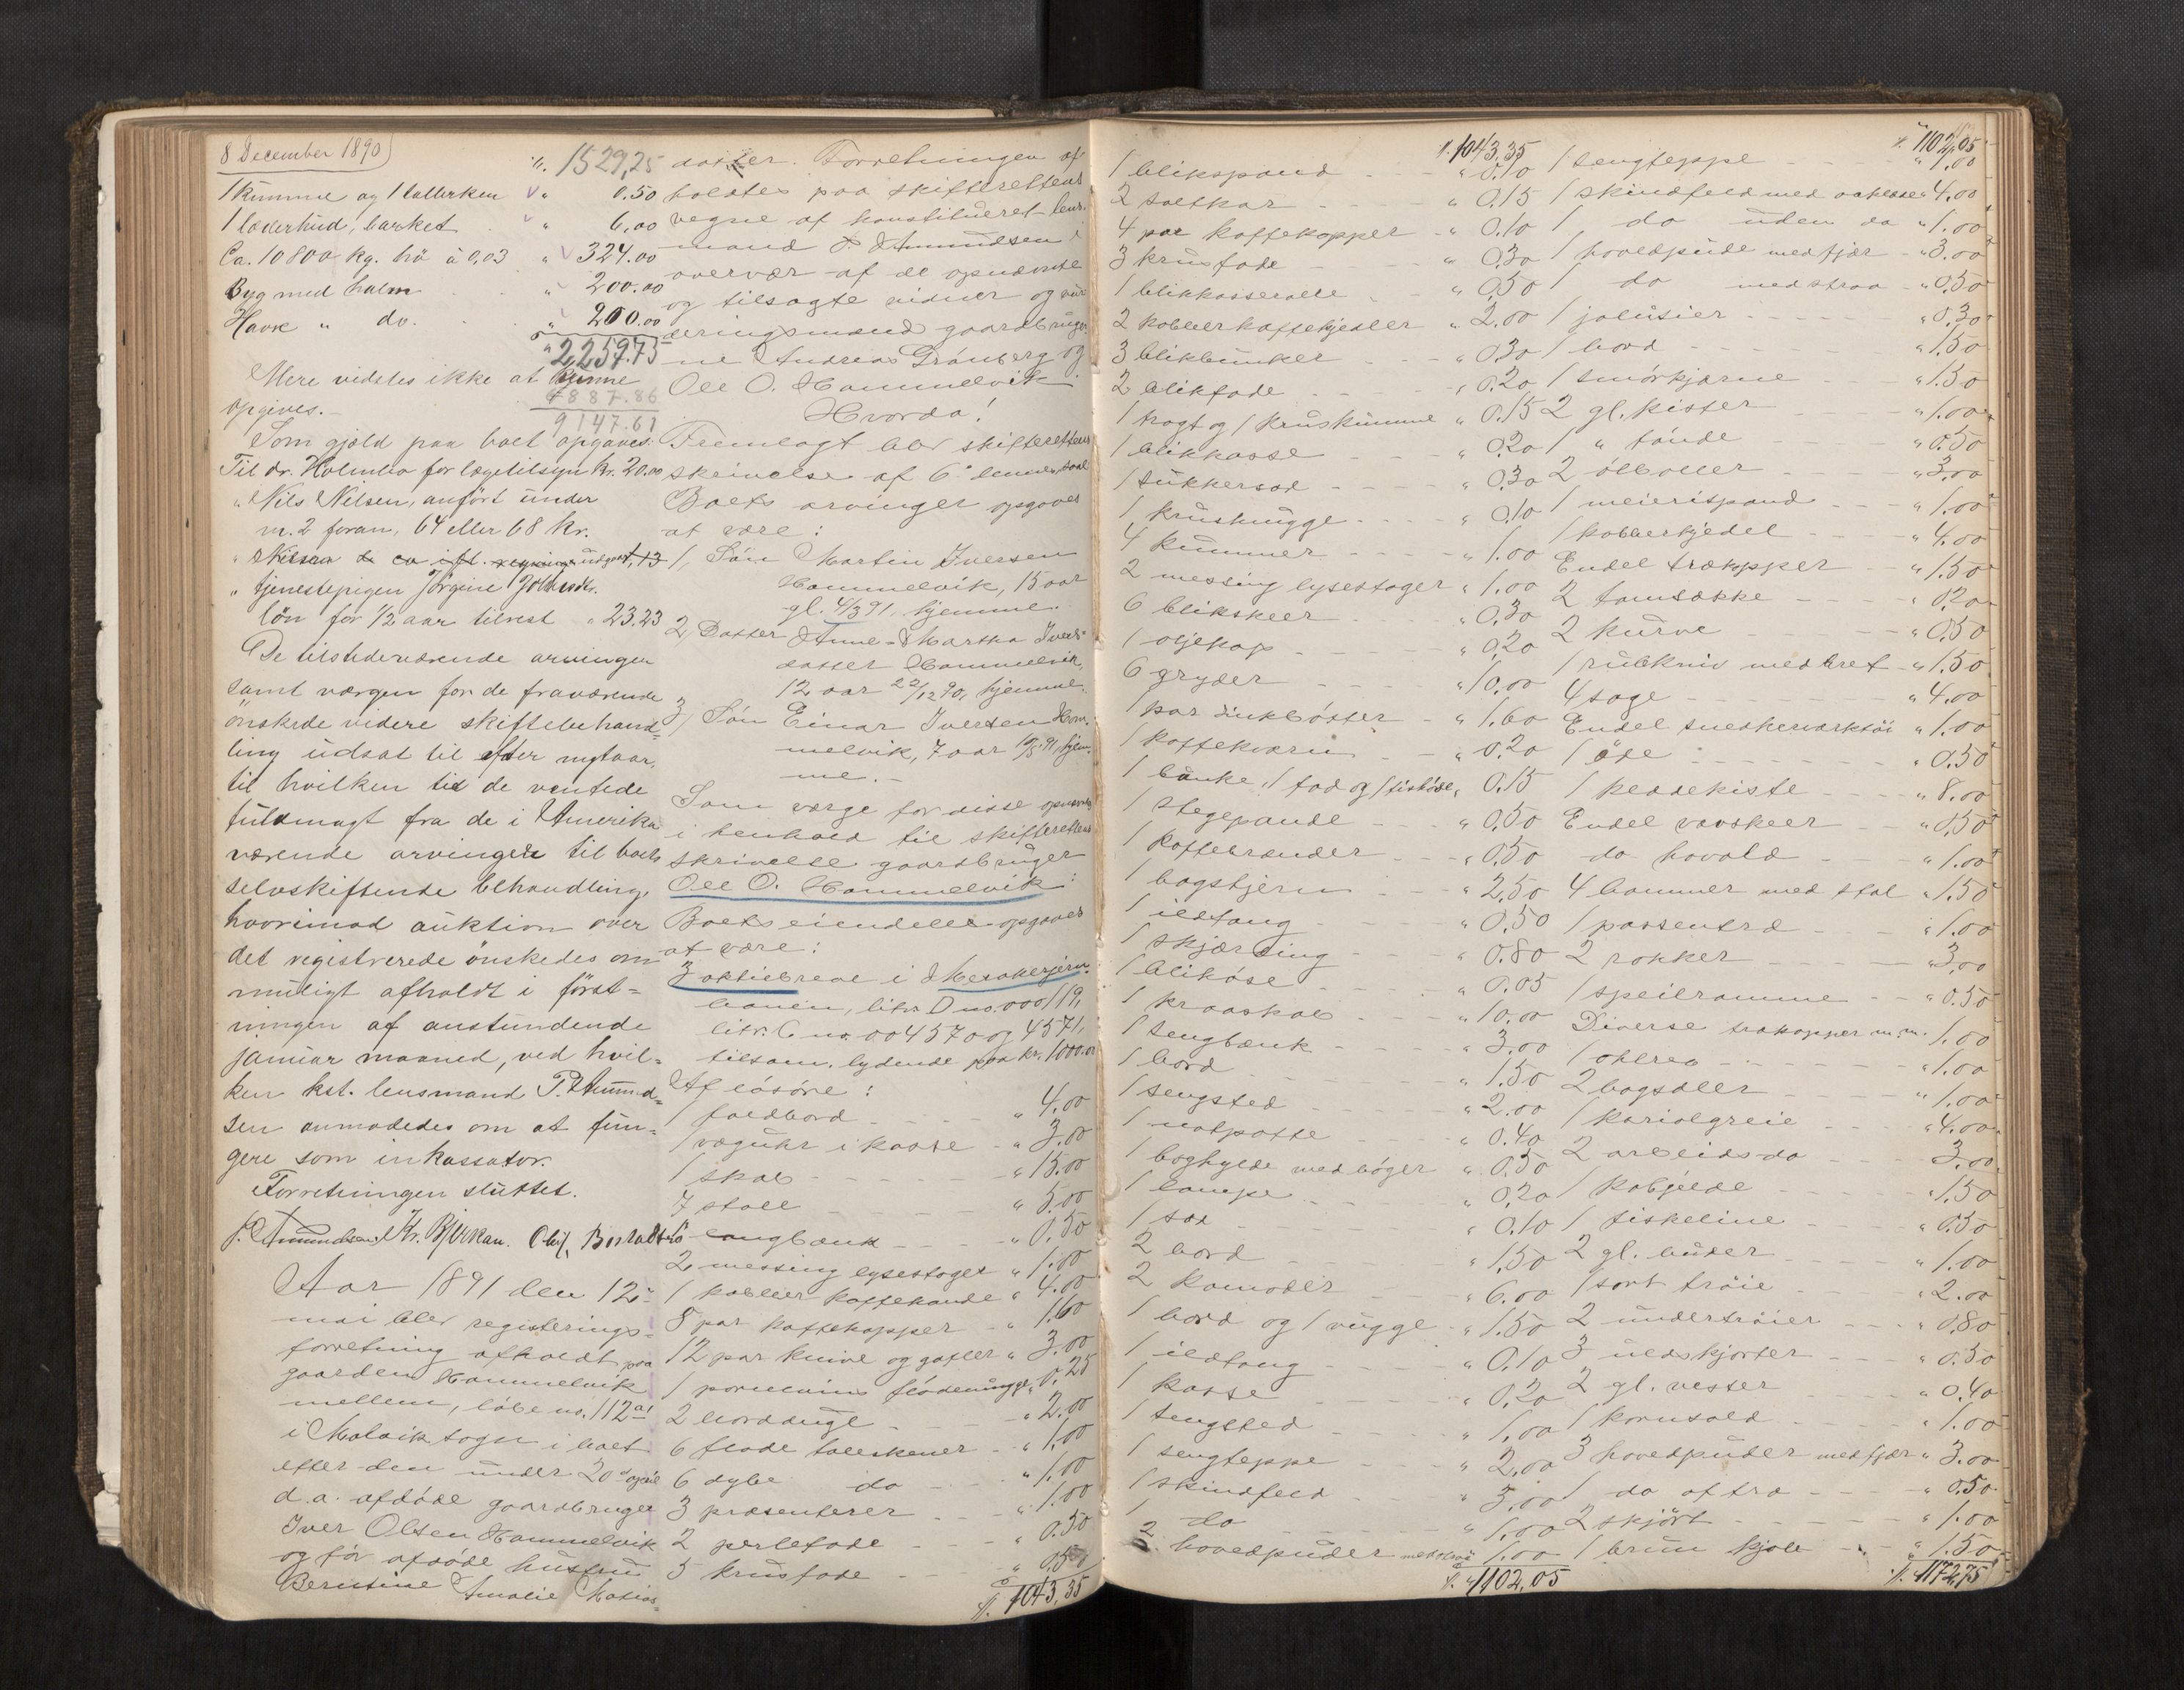 8 December 1890
". 1529,25
1 kumme og 1 tallerken " 0.50
1 læderhud, barket " 6,00
Ca. 10800 kg. hö à 0,03 " 324.00
Byg med halm " 200.00
Havre " do. " 200.00
" 2,259.75
Mere vidstes ikke at kunne
6887.86
opgives.
9147.61
Som gjæld paa boet opgaves:
Til dr. Holmbo for lægetilsyn kr. 20.00
" Nils Nilsen, anfört under
nr. 2 foran, 64 eller 68 kr.
" tjenestepigen Jörgine
lön for 1/2 aar tilrest " 23.23
De tilstedeværende arvinger
samt værgen for de fraværende
önskede videre skiftebehand=
ling udsat til efter nytaar,
til hvilken tid de ventede
fuldmagt fra de i Amerika
værende arvinger til boets
selvskiftende behandling,
hvorimod auktion over
det registrerede önskedes om
muligt afholdt i först=
ningen af anstundende
januar maaned, ved hvil=
ken kst. lensmand P. Amund=
sen anmodedes om at fun=
gere som inkassator.
Forretningen sluttet.
P. Amundsen. Kr. Bjerkan.
Aar 1891 den 12te
mai blev registerings=
forretning afholdt paa
gaarden Hommelvik
mellem, löbe no. 112 a1
i Malvik sogn i boet
efter den under 20de april
d.a. afdöde gaardbruger
Iver Olsen Hommelvik
og för afdöde hustru
Berntine Amalie Matias=
datter. Forretningen af
holdtes paa skifterettens
vegne af konstitueret lens=
mand P. Amundsen i
overvær af de opnævnte
og tilsagte vidner og vur
deringsmænd gaardbruger
ne Andreas Grönberg og
Ole O. Hommelvik
Hvorda!
Fremlagt blev skifterettens
skrivelse af 6te dennes
Boets arvinger opgaves
at være:
1, Sön Martin Iversen
Hommelvik, 15 aar
gl. 4/3 91, hjemme.
2, Datter Anne-Martha Ivers=
datter Hommelvik,
12 aar 22/12 90, hjemme.
3, Sön Einar Iversen Hom=
melvik, 7 aar 10/5 91, hjem=
me.
Som værge for disse opnævnes
i henhold til skifterettens
skrivelse gaardbruger
Ole O. Hommelvik:
Boets eiendeler opgaves
at være:
3 aktiebreve i Merakerjern=
banen, litr. D no. 000119,
litr. C no. 004570 og 4571,
tilsam. lydende paa kr. 1000.00
Af lösöre:
1 foldbord " 4.00
1 væguhr i kasse " 3.00
1 skab " 15.00
7 stole " 5.00
1 langbænk " 0.50
2 messing lysestager " 1.00
1 kobber kaffekande " 4.00
8 par kaffekopper " 1.60
12 par knive og gafler " 3.00
1 porcelains flödemugge " 0.25
2 bordduge " 2.00
6 flade tallerkener " 1.00
6 dybe do " 1.00
3 præsenterer " 1.00
2 perlefade " 0.50
5 krusfade " 0.50
". 1043,35
". 1043,35
1 blikspand " 0.10
2 saltkar " 0.15
4 par kaffekopper " 0.10
3 krusfade " 0.30
1 blikkasserolle " 0,50
2 kobberkaffekjedler " 2.00
3 blikbunker " 0,30
2 blikfade " 0.20
1 tragt og 1 kruskumme " 0.15
1 blikkasse " 0,20
1 sukkersax " 0.30
1 krusmugge " 0,10
4 kummer " 1.00
2 messing lysestager " 1.00
6 blikskeer " 0.30
1 oljekop " 0,20
6 gryder " 10.00
1 par zinkbötter " 1.60
1 kaffekværn " 0.20
1 bunke, 1 fad og 1 " 0.15
1 stegepande " 0,50
1 kaffebrænder " 0,50
1 bagstjern " 2,50
1 ildtang " 0,50
1 skjærding " 0.80
1 bliköse " 0.05
1 kraaskab " 10.00
1 sengbænk " 3.00
1 bord " 1.50
1 sengsted " 2.00
1 natpotte " 0.40
1 boghylde med böger " 0.50
1 lampe " 0,20
1 sax " 0.10
2 bord " 1,50
2 komoder " 6.00
1 bord og 1 vugge " 1,50
1 ildtang " 0.10
1 kasse " 0,20
1 sengsted " 1,00
1 sengteppe " 2,00
1 skindfeld " 3,00
1 do " 1.00
2 hovedpuder med straa 1.00
". 1102,05
". 1102,05
1 sengteppe " 1.00
1 skindfeld med aaklæde " 4,00
1 do uden do " 1.00
1 hovedpude med fjær " 3.00
1 do med straa " 0,50
1 jalusier " 0,30
1 bord " 1,50
1 smörkjærne " 1.50
2 gl. kister " 1.00
1 " tönde " 0.50
2 ölboller " 3,00
1 meierispand " 1.00
1 kobberkjedel " 4.00
Endel trækopper " 1,50
2 tomsække " 0,20
2 kurve " 0,50
1 rulkniv med bret " 1.50
4 sage " 4.00
Endel snedkerværktöi " 1.00
1 öxe " 0.50
1 reddekiste " 8.00
Endel vævskeer " 0,50
do hovold " 1.00
4 hammer med stol " 1,50
1 passentræ " 1.00
2 rokker " 3,00
1 speilramme " 0.50
Diverse trækopper m.m. 1.00
1 okletræ " 1.00
2 bogsæler " 1,00
1 kariolgreie " 4.00
2 arbeids-do 3.00
1 kobjelde " 1,50
1 fiskeline " 0.50
2 gl. huder " 1.00
1 sort tröie " 2.00
2 undertröier " 0,80
3 uldskjorter " 0.50
2 gl. vester " 0.40
1 kornsold " 1.00
3 hovedpuder med fjær " 3.00
1 do af træ " 0.50
2 skjört " 1.00
1 brun kjole " 1.50
". 1172,75